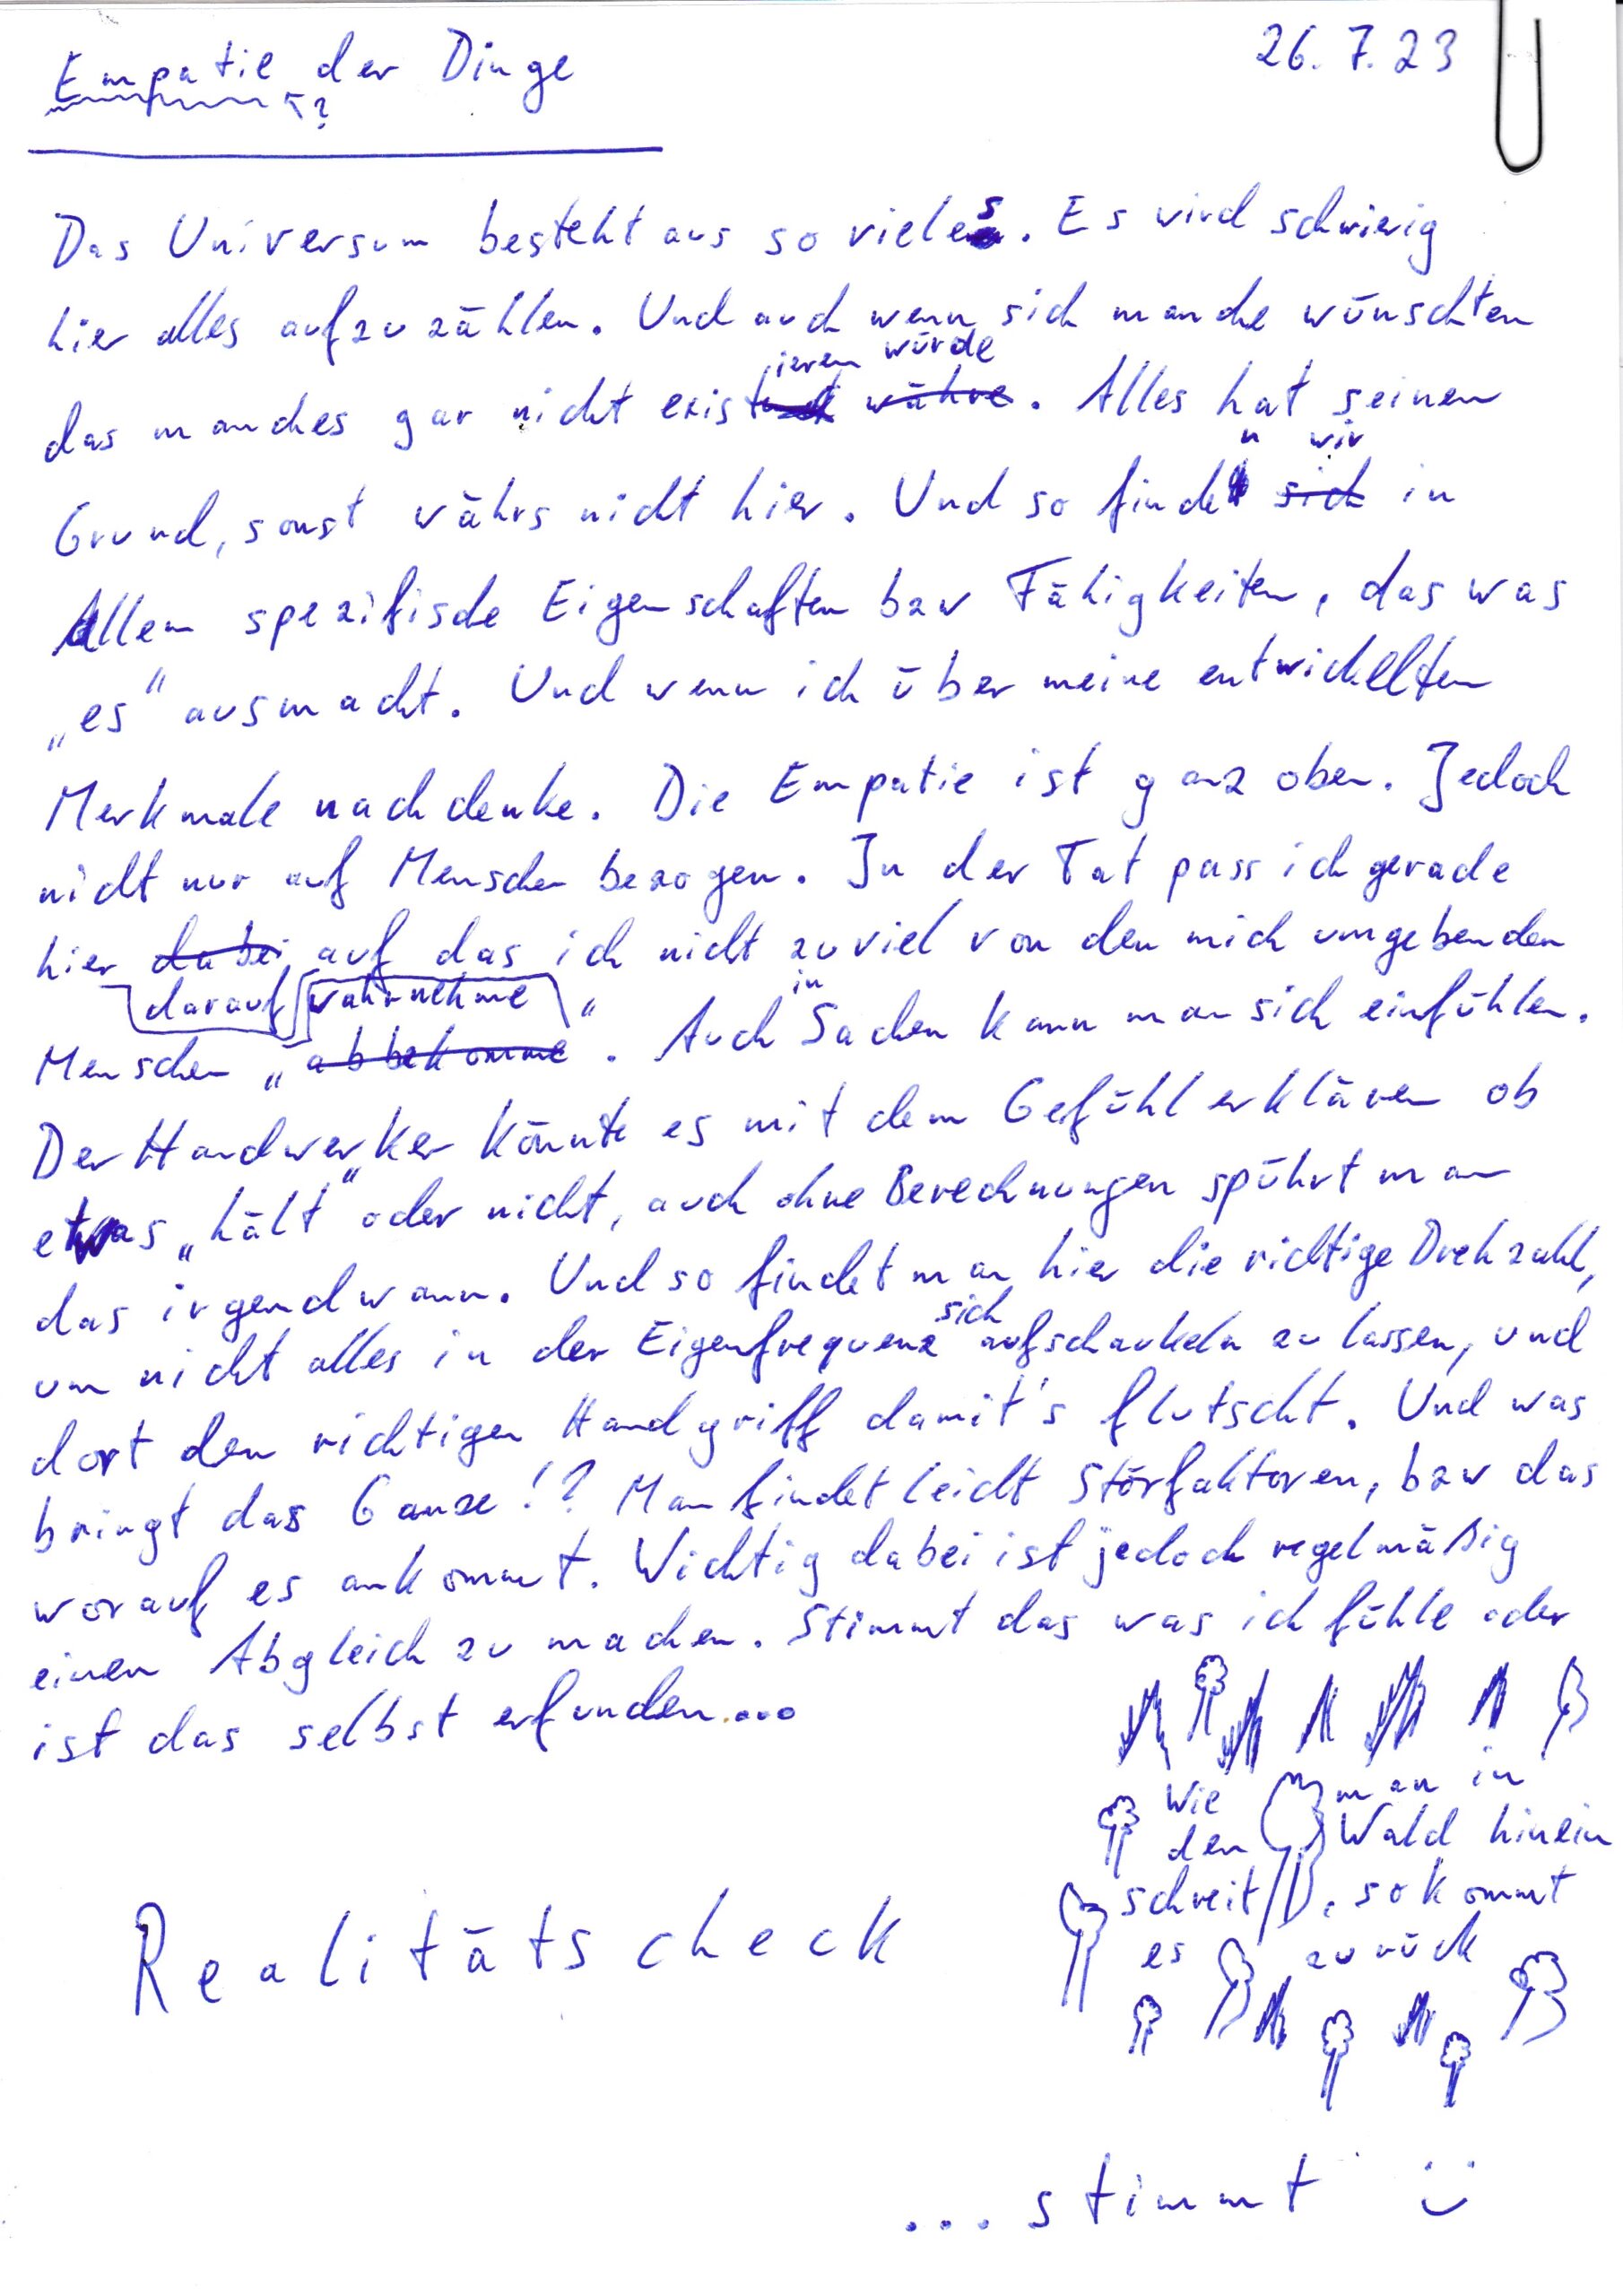 Empatie der Dinge 26.7.23
?
Das Universum besteht aus so vieles. Es wird schwierig
hier alles aufzuzählen. Und auch wenn sich manche wünschten
das manches gar nicht existieren würde währe. Alles hat seinen
Grund, sonst währs nicht hier. Und so finden wir sich in
Allem spezifische Eigenschaften bzw Fähigkeiten, das was
„es“ ausmacht. Und wenn ich über meine entwickelten
Merkmale nachdenke. Die Empatie ist ganz oben. Jedoch
nicht nur auf Menschen bezogen. In der Tat pass ich gerade
hier dabei darauf auf das ich nicht zuviel von den mich umgebenden
Menschen „abbekomme wahrnehme“. Auch in Sachen kann man sich einfühlen.
Der Handwerker könnte es mit dem Gefühl erklären ob
etwas „hält“ oder nicht, auch ohne Berechnungen spührt man
das irgendwann. Und so findet man hier die richtige Drehzahl,
um nicht alles in der Eigenfrequenz sich aufschaukeln zu lassen, und
dort den richtigen Handgriff damit's flutscht. Und was
bringt das Ganze!? Man findet leicht Störfaktoren, bzw das
worauf es ankommt. Wichtig dabei ist jedoch regelmäßig
einen Abgleich zu machen. Stimmt das was ich fühle oder
ist das selbst erfunden...
Wie man in
den Wald hinein
schreit, so kommt
es zurück
Realitätscheck
...stimmt :)